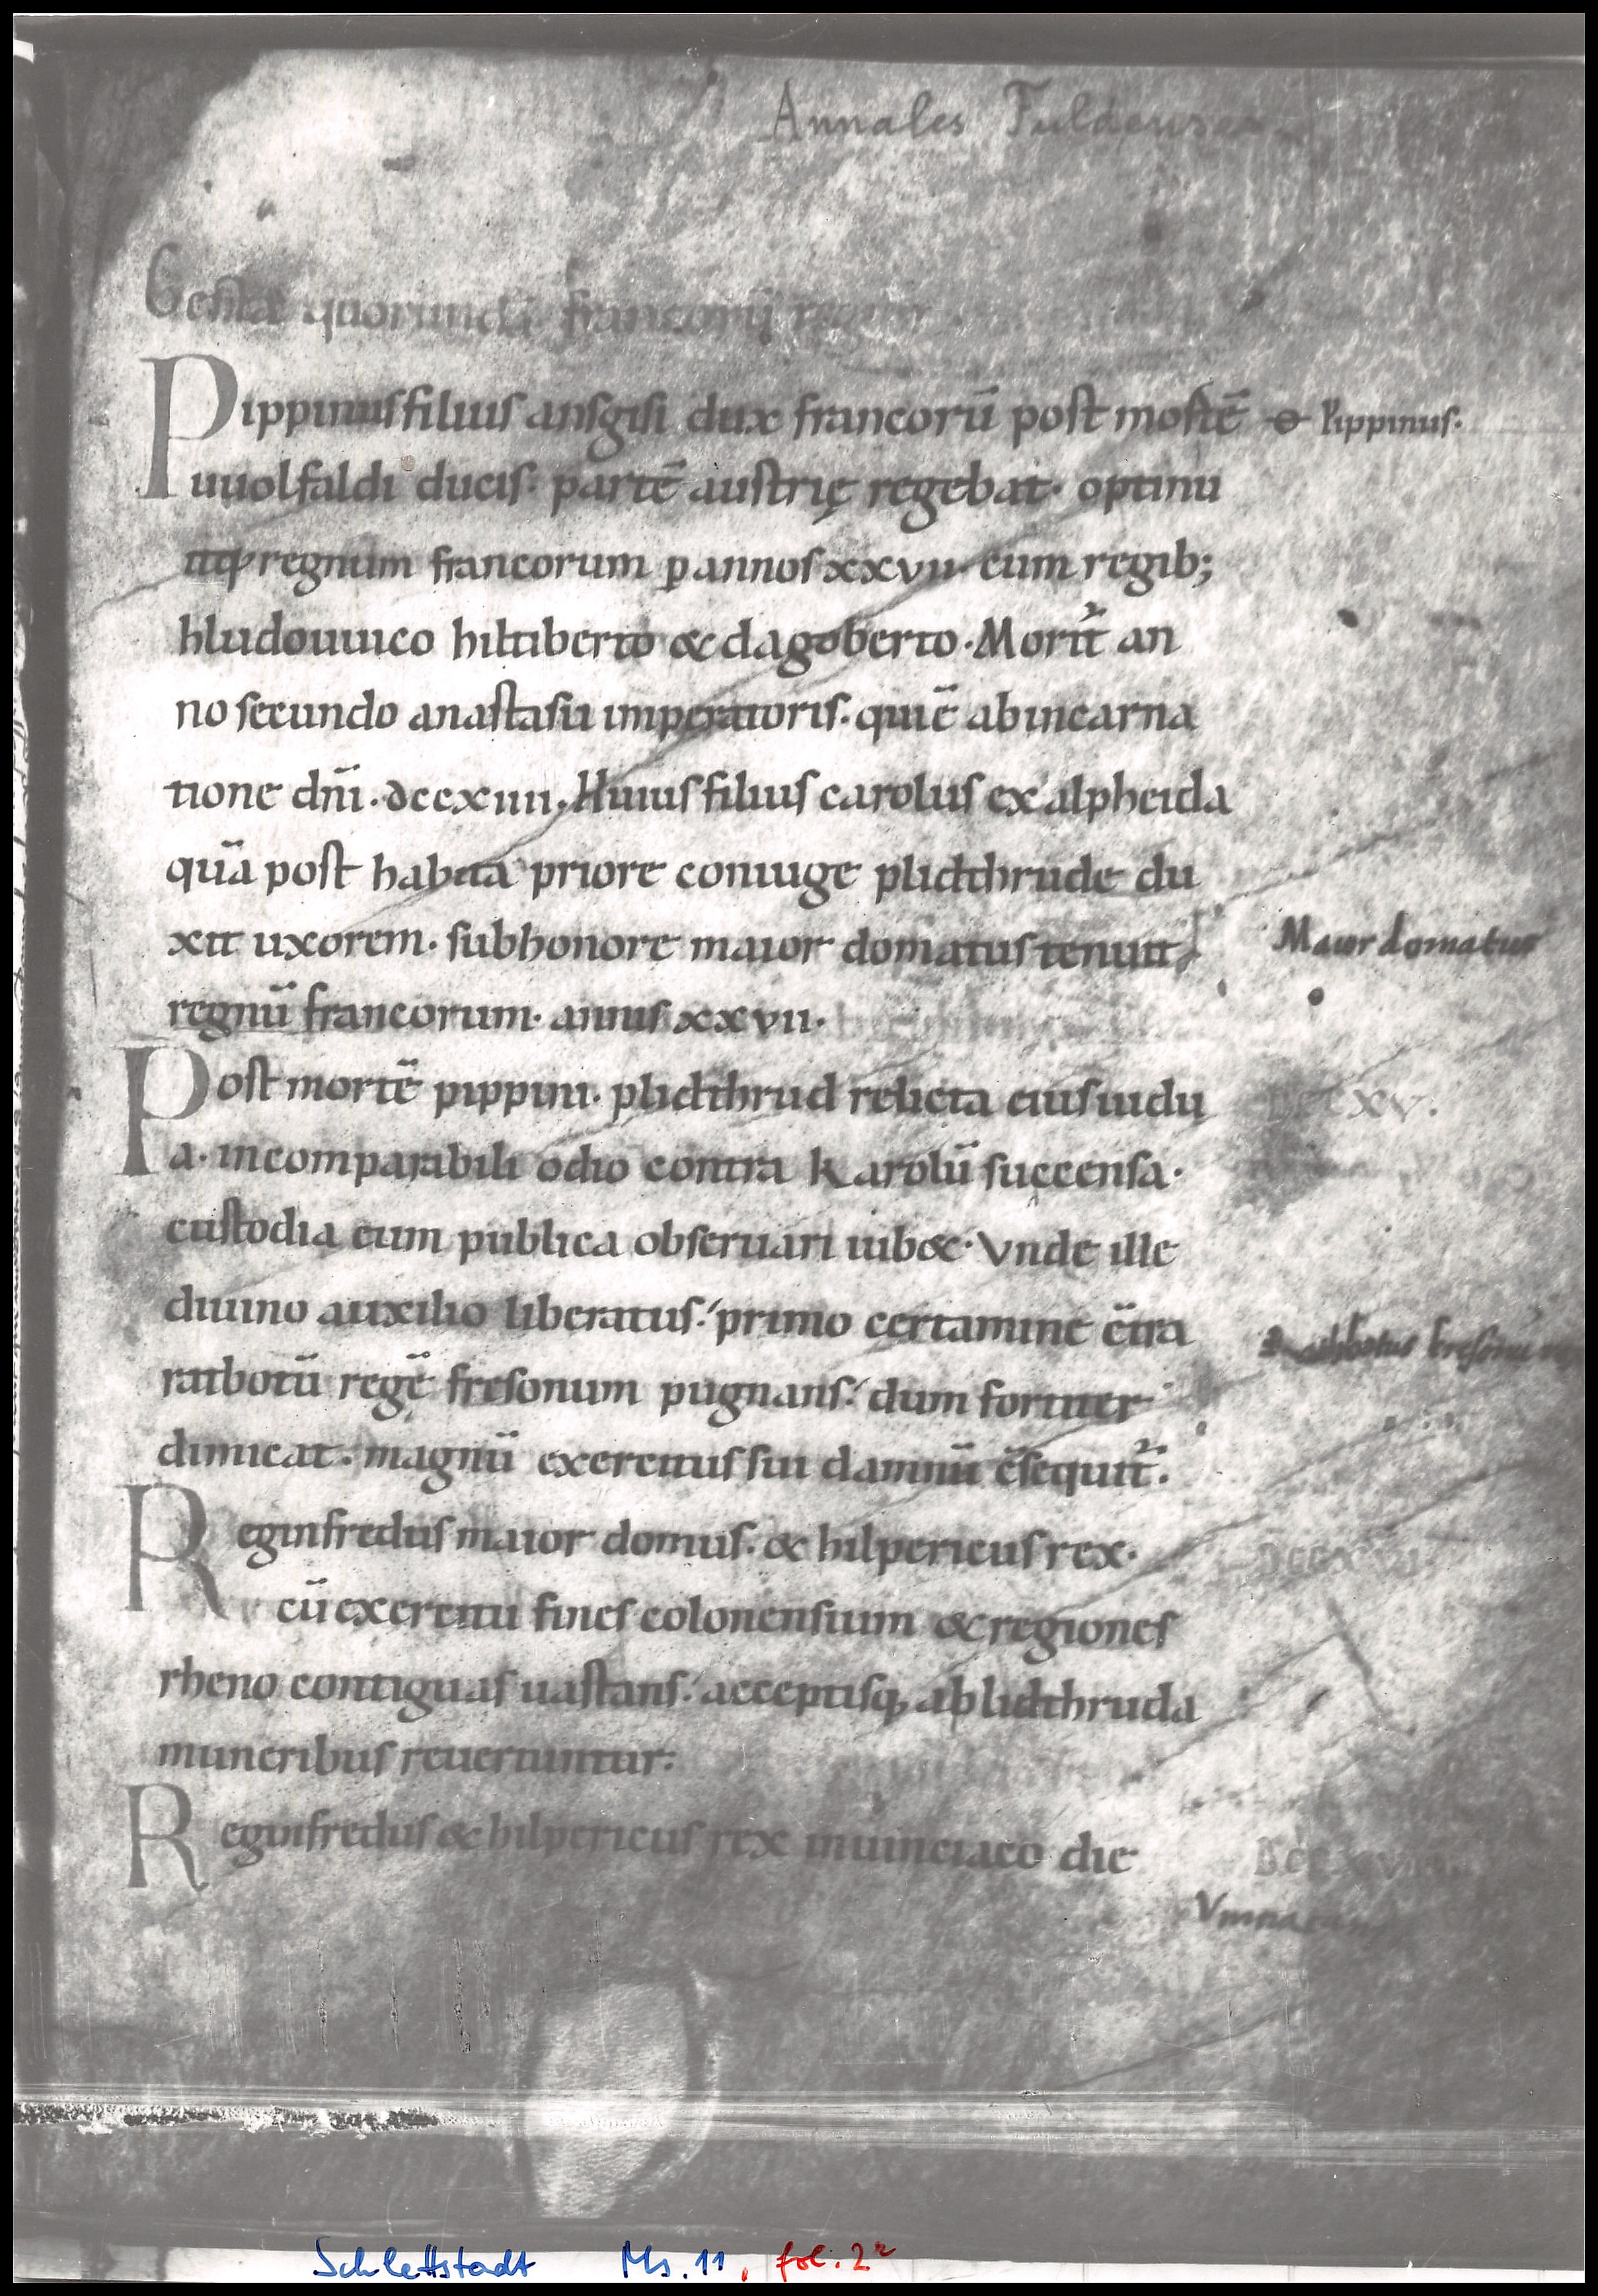 Annales Fuldenses
Gesta quorundā francorū regum
Pippinus filius ansgisi dux francorū post mostē Pippinus.
uuolfaldi ducis. partē austrię regebat. optinu
itq; regnum francorum ꝑ annos xxvii. cum regib;
hludouuico hiltiberto & dagoberto. Morit᷑ an
no secundo anastasii imperatoris. qui ē ab incarna
tione dn̄i. dccxiiii. Huius filius carolus ex alpheida
quā post habita priore coniuge plidthrude du
xit uxorem. sub honore maior domatus tenuit Maior domatus
regnū francorum. annis xxvii.
Post mortē pippini. plidthrud relicta eius uidu DCCXV.
a. incomparabili odio contra karolū succensa.
custodia eum publica obseruari iub&. Vnde ille
diuino auxilio liberatus. primo certamine c̄tra
ratbotū regē fresonum pugnans. dum fortiter Rathbotus fresonū
dimicat. magnū exercitus sui damnū c̄sequit᷑.
Reginfredus maior domus. & hilpericus rex. DCCXVI.
cū exercitu fines colonensium & regiones
rheno contiguas uastans. acceptisq; ab lidthruda
muneribus reuertuntur.
Reginfredus & hilpericus rex in uinciaco die DCCXVII
Schlettstadt Ms. 11, fol. 2r